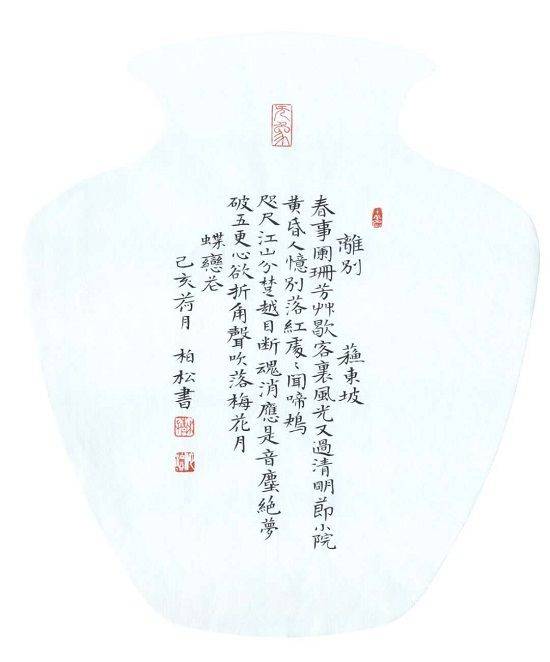 離別 蘓東坡
春事阑珊芳艸歇客裏風光又過清明節小院
黄昏人憶別落紅處〻聞啼鴂
咫尺江山分楚越目断魂消應是音塵絶夢
破五更心欲折角聲吹落梅花月
蝶戀花
己亥荷月 柏松書